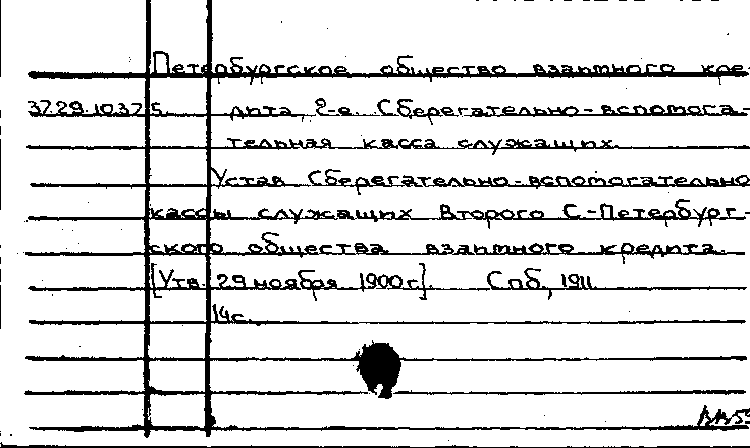 Петербургское общество взаимного кре-
37.29.10.37.5. дита, 2-е. Сберегательно-вспомога-
тельная касса служащих.
Устав Сберегательно-вспомогательно
кассы служащих Второго С.-Петербург-
ского общества взаимного кредита.
[Утв. 29 ноября 1900 г.]. Спб., 1911.
14 с.